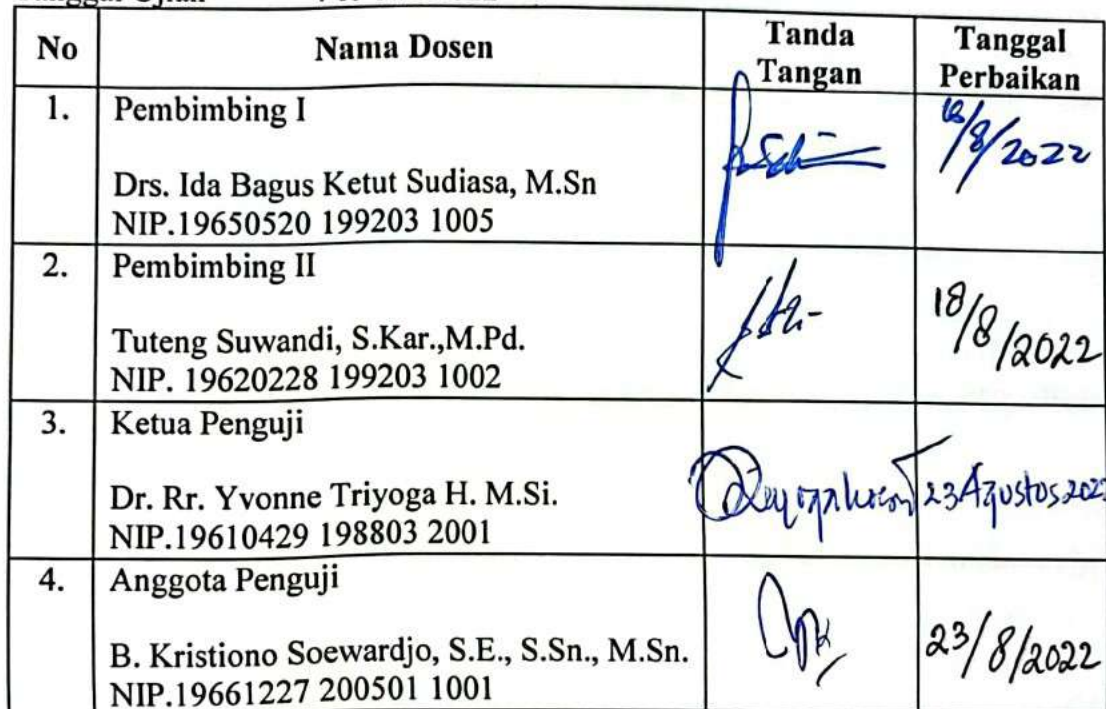 No
Nama Dosen
Tanda
Tangan
Tanggal
Perbaikan
1.
Pembimbing I
Drs. Ida Bagus Ketut Sudiasa, M.Sn
NIP.19650520 199203 1005
18/8/2022
2.
Pembimbing II
Tuteng Suwandi, S.Kar.,M.Pd.
NIP. 19620228 199203 1002
18/8/2022
3.
Ketua Penguji
Dr. Rr. Yvonne Triyoga H. M.Si.
NIP.19610429 198803 2001
23 Agustus
4.
Anggota Penguji
B. Kristiono Soewardjo, S.E., S.Sn., M.Sn.
NIP.19661227 200501 1001
23/8/2022